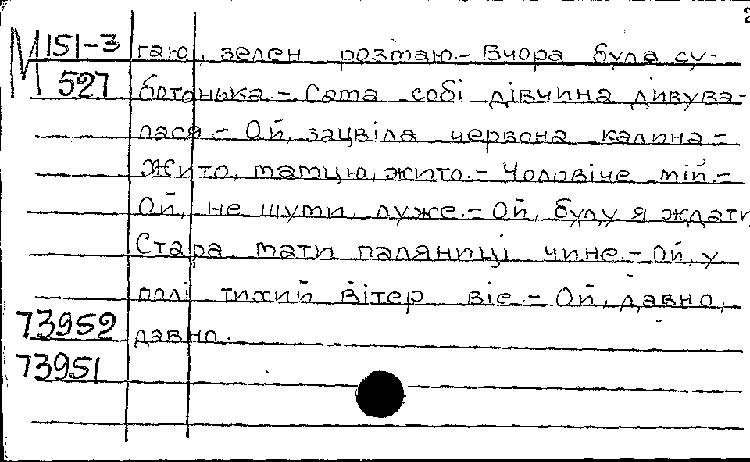 2
М 151-3 гаю, зелен розмаю.- Вчора була су-
527 ботонька.- Сама собі дівчина дивува-
лася.- Ой, зацвіла червона калина.-
Жито, мамцю, жито.- Чоловіче мій.-
Ой, не шуми, луже.- Ой, буду я ждати,
Стара мати паляниці чине.- Ой, у
полі тихий вітер віє.- Ой, давно,
73952 давно.
73951